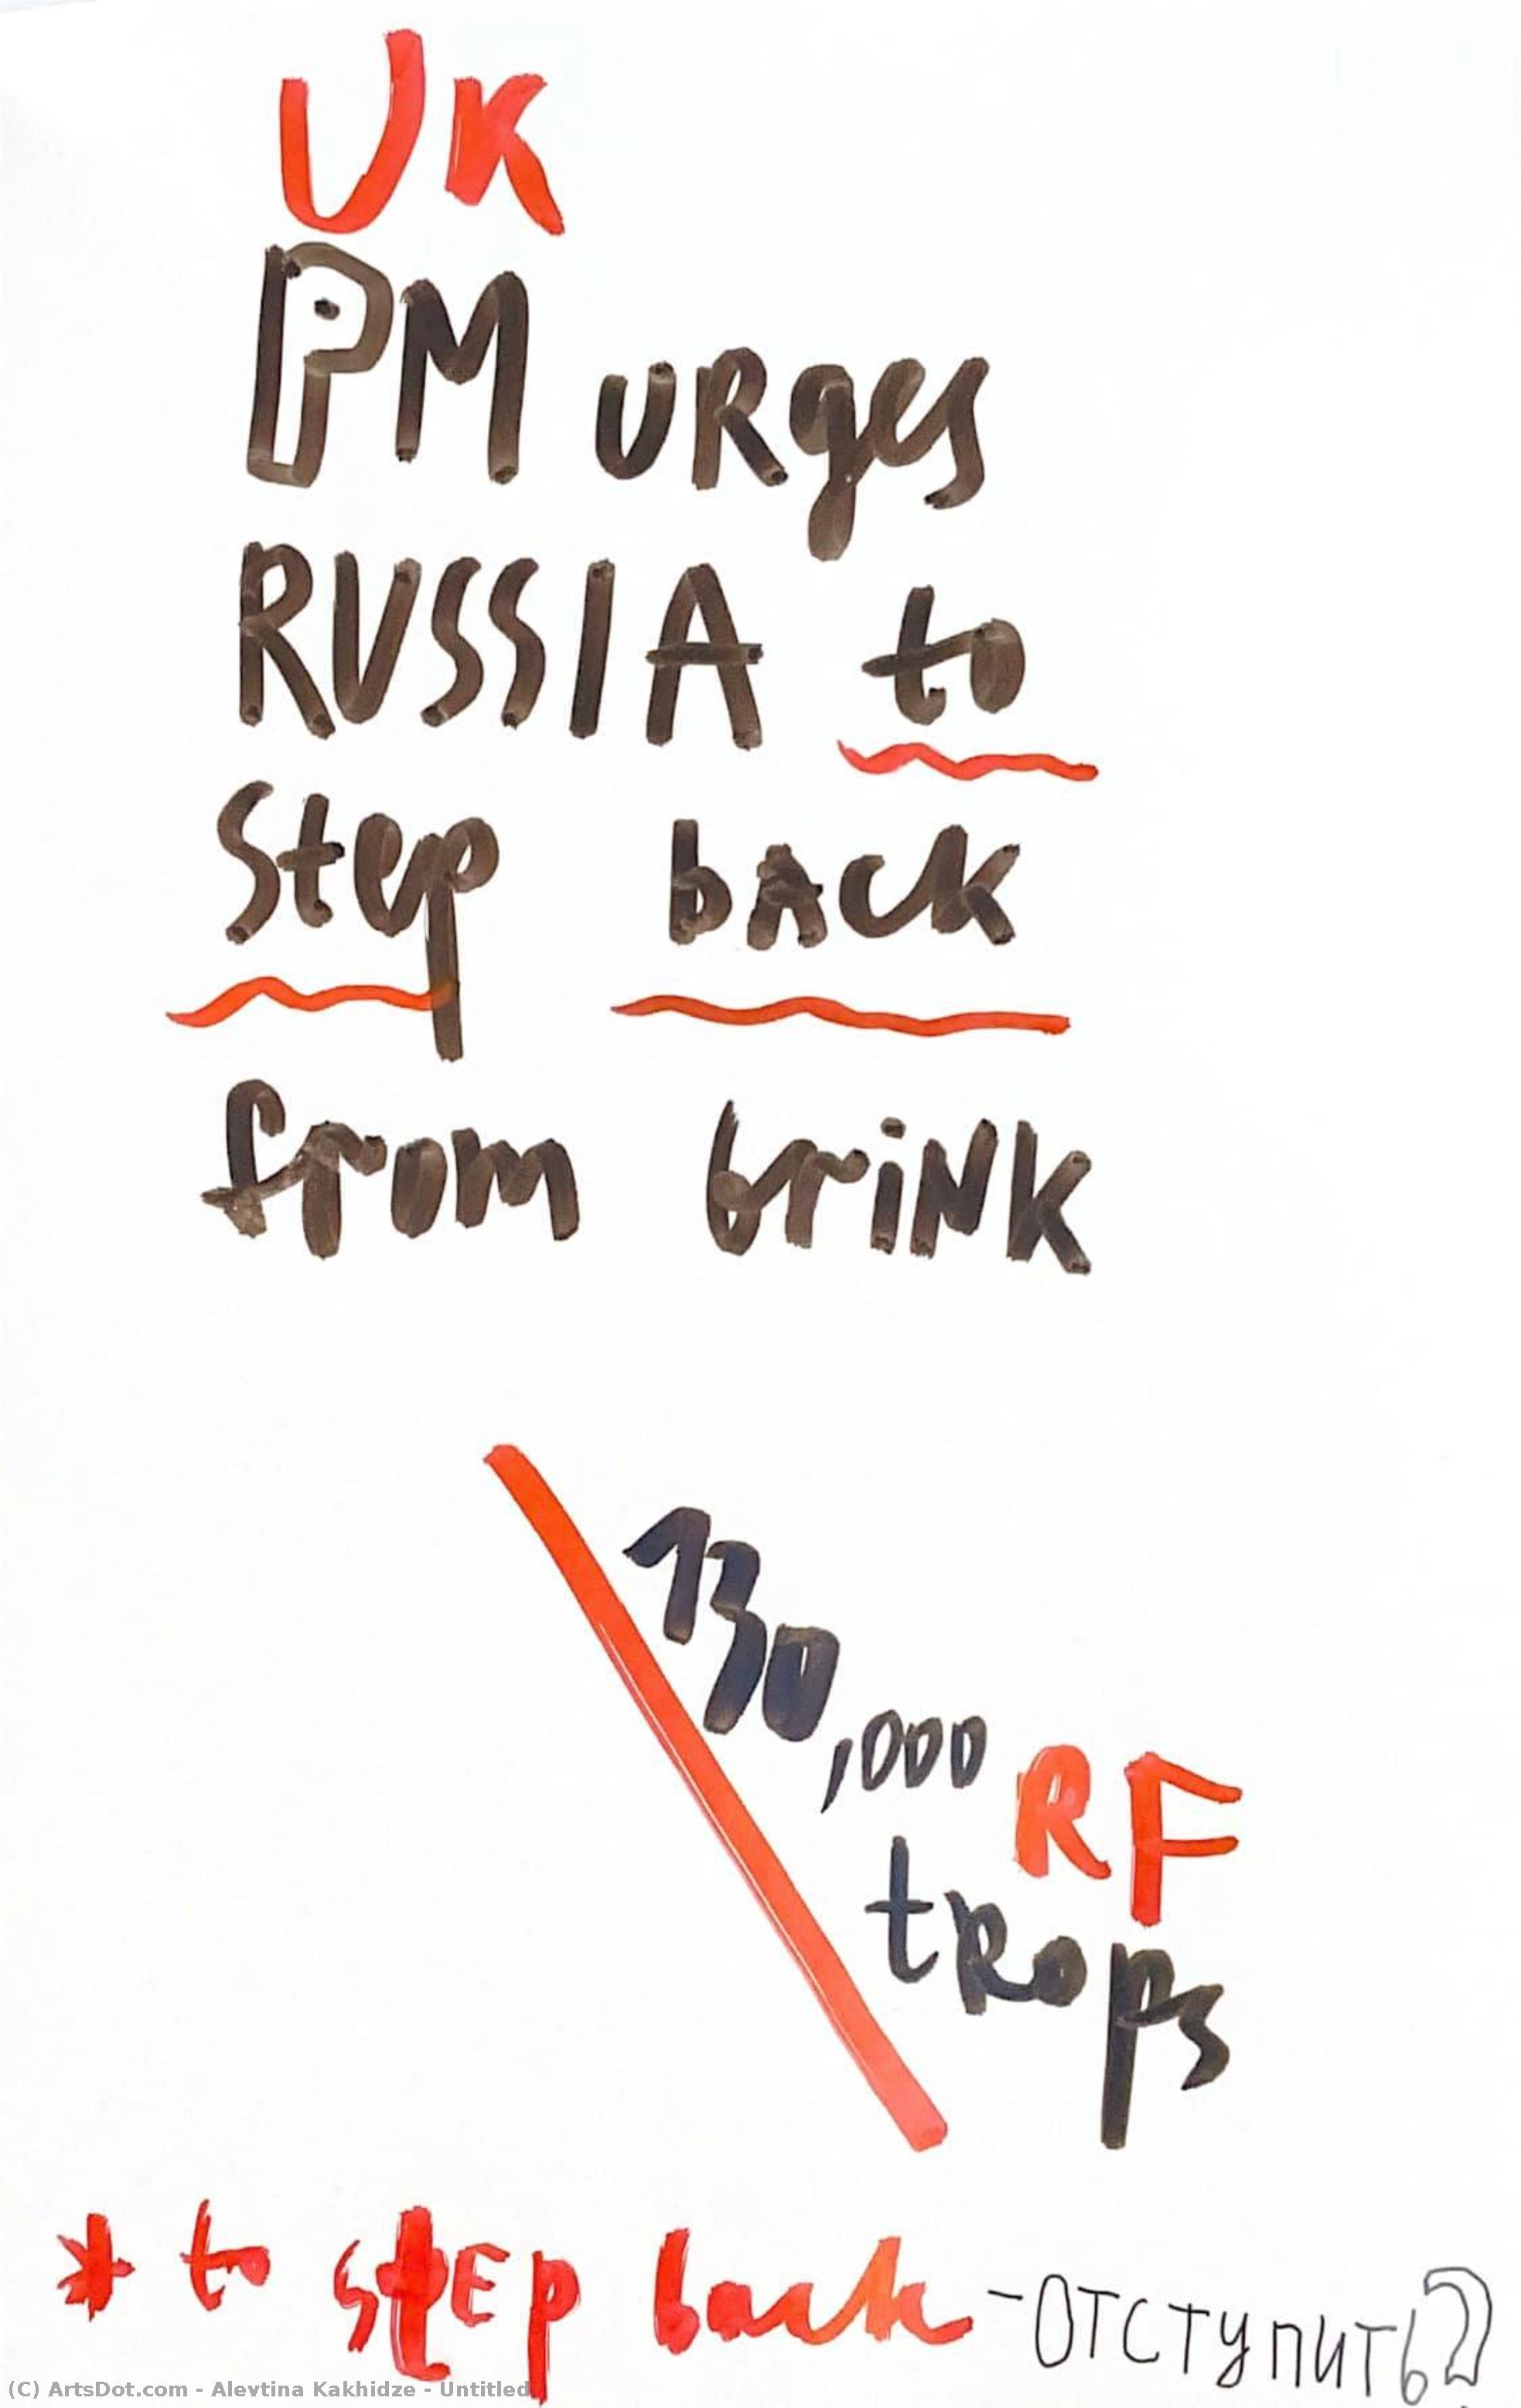 UK
PM urges
RUSSIA to
step back
from brink
130,000 RF
trops
* to stEp back - отступить?
(C) ArtsDot.com - Alevtina Kakhidze - Untitled